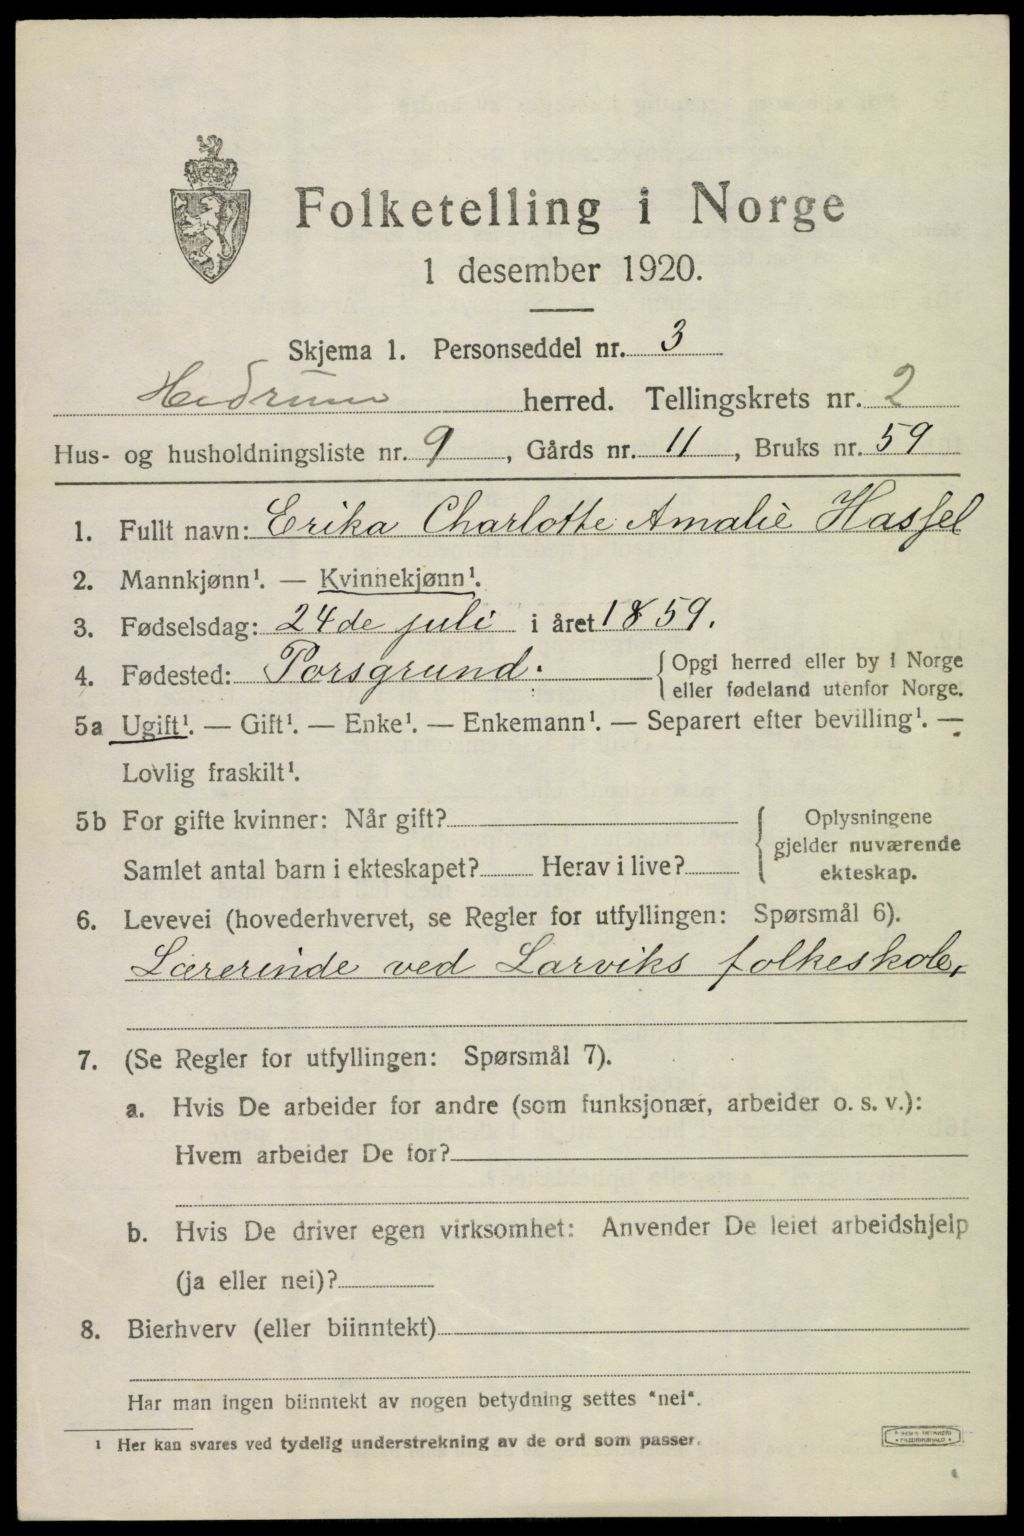 Folketelling i Norge
1 desember 1920.
Skjema 1. Personseddel nr. 3
Hedrum herred. Tellingskrets nr. 2
Hus- og husholdningsliste nr. 9, Gårds nr. 11, Bruks nr. 59
1. Fullt navn: Erika Charlotte Amalie Hassel
2. Mannkjønn¹. — Kvinnekjønn¹.
3. Fødselsdag: 24de juli i året 1859.
4. Fødested: Porsgrund. { Opgi herred eller by i Norge
eller fødeland utenfor Norge.
5a Ugift¹. — Gift¹. — Enke¹. — Enkemann¹. — Separert efter bevilling¹. —
Lovlig fraskilt¹.
5b For gifte kvinner: Når gift? { Oplysningene
gjelder nuværende
Samlet antal barn i ekteskapet? Herav i live? ekteskap.
6. Levevei (hovederhvervet, se Regler for utfyllingen: Spørsmål 6).
Lærerinde ved Larviks folkeskole,
7. (Se Regler for utfyllingen: Spørsmål 7).
a. Hvis De arbeider for andre (som funksjonær, arbeider o. s. v.):
Hvem arbeider De for?
b. Hvis De driver egen virksomhet: Anvender De leiet arbeidshjelp
(ja eller nei)?
8. Bierhverv (eller biinntekt)
Har man ingen biinntekt av nogen betydning settes "nei".
¹ Her kan svares ved tydelig understrekning av de ord som passer.